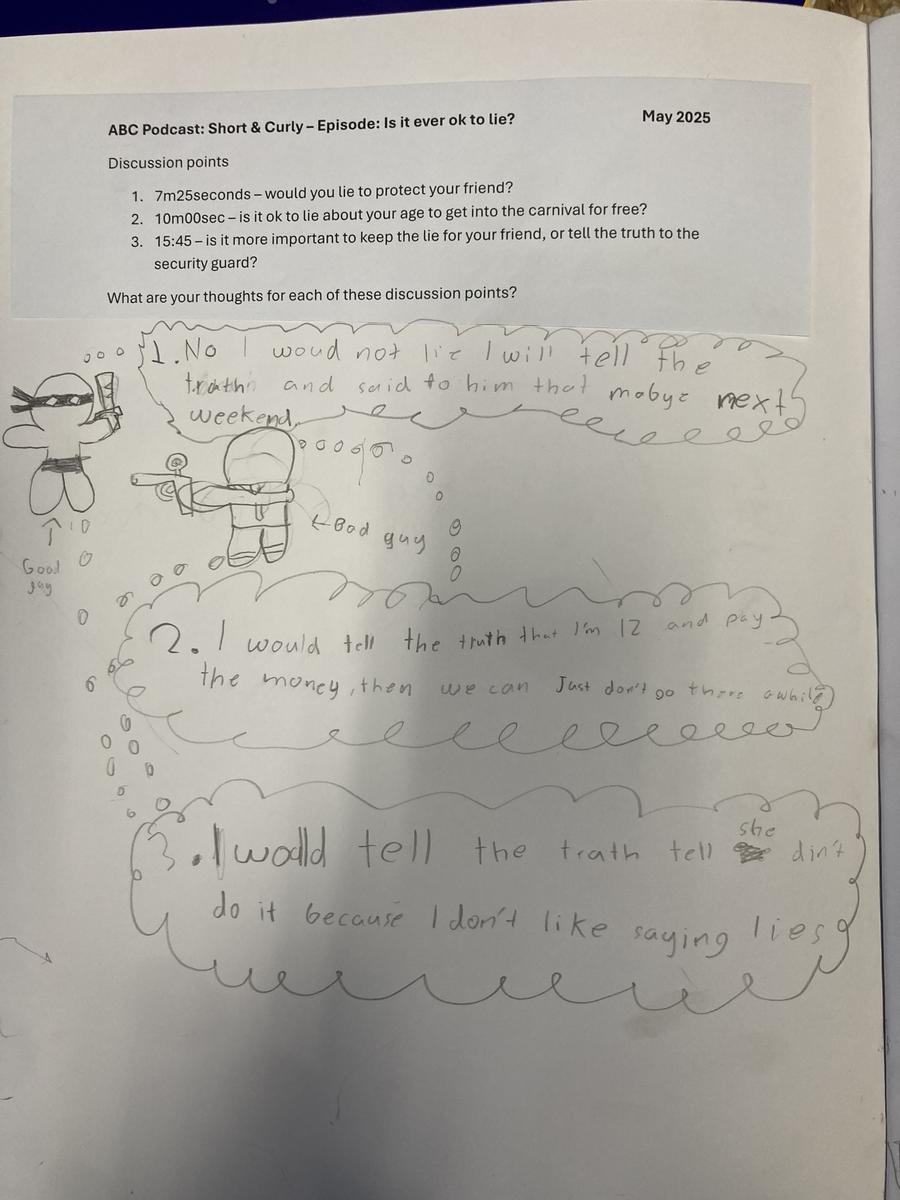 ABC Podcast: Short & Curly – Episode: Is it ever ok to lie? May 2025
Discussion points
1. 7m25seconds – would you lie to protect your friend?
2. 10m00sec – is it ok to lie about your age to get into the carnival for free?
3. 15:45 – is it more important to keep the lie for your friend, or tell the truth to the
security guard?
What are your thoughts for each of these discussion points?
1. No I woud not lie I will tell the
trath and said to him that mabye next
weekend.
← Bad guy
Good
guy
2. I would tell the truth that I'm 12 and pay
the money, then we can Just don't go there awhile
3. I woald tell the trath tell she din't
do it because I don't like saying lies